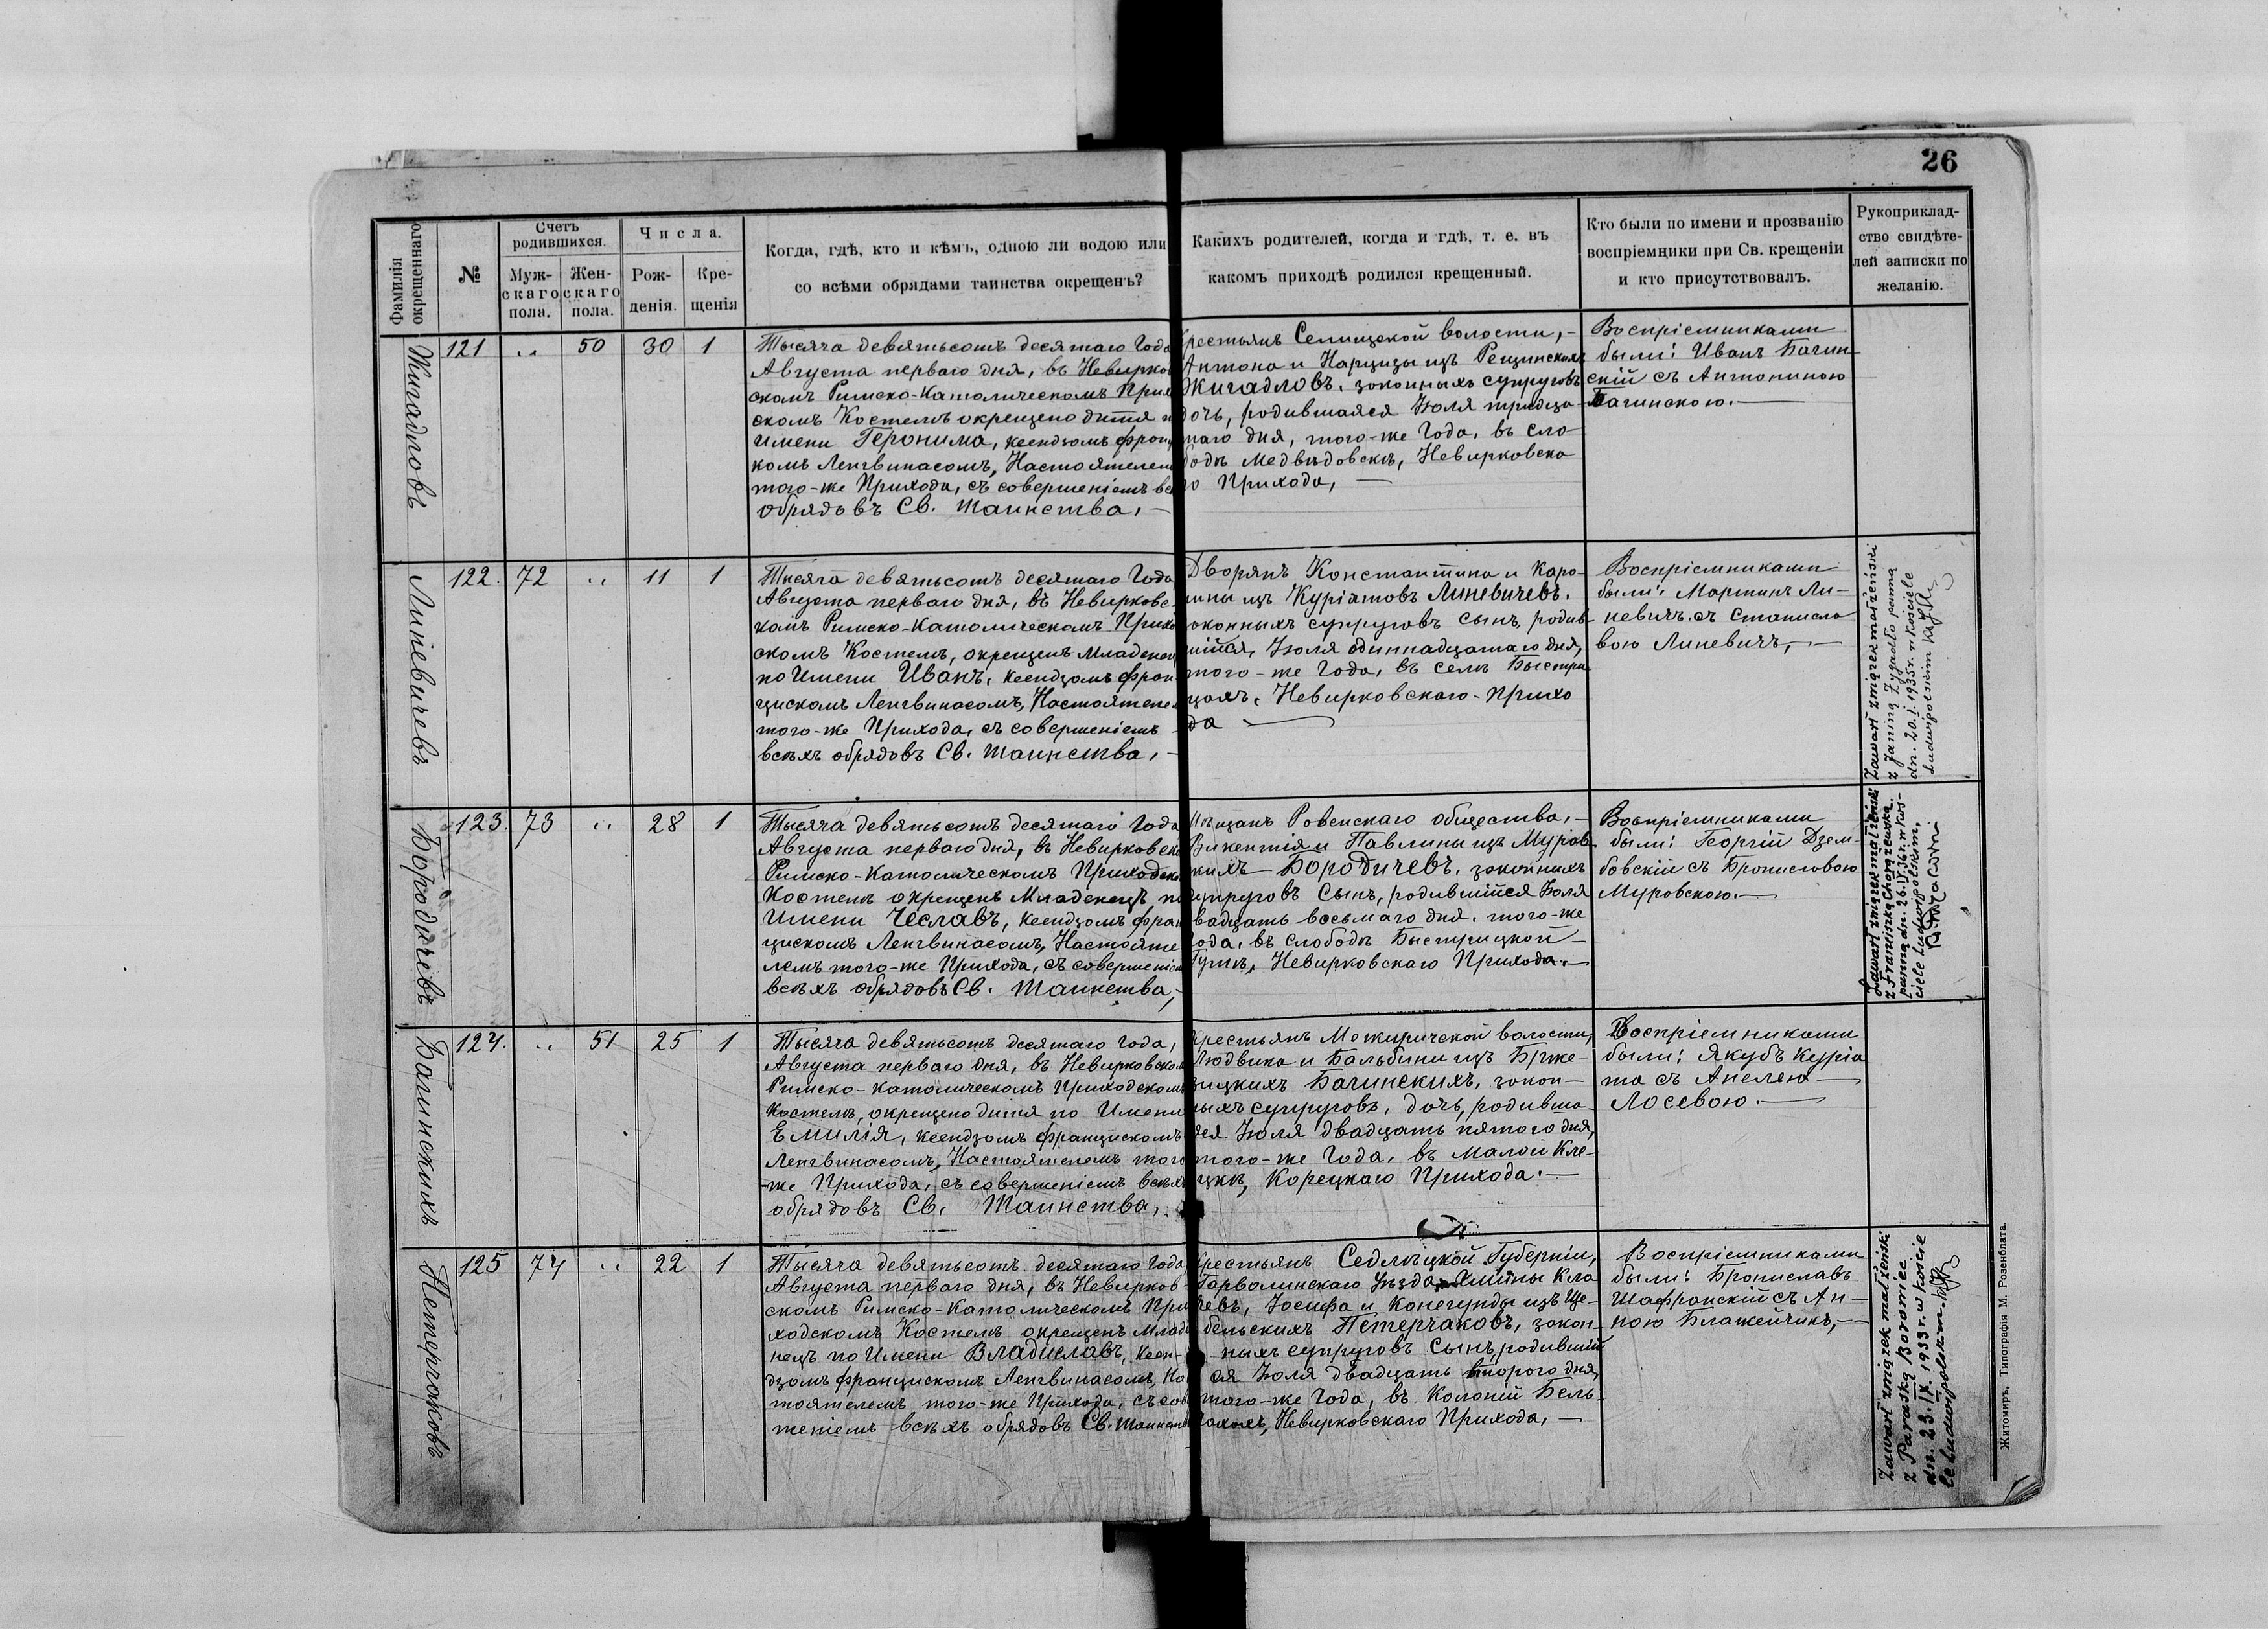 26
Фамилія окрещеннаго
№
Счетъ родившихся.
Мужскаго пола.
Женскаго пола.
Числа.
Рожденія.
Крещенія
Когда, гдѣ, кто и кѣмъ, одною ли водою или
со всѣми обрядами таинства окрещенъ?
Какихъ родителей, когда и гдѣ, т. е. въ
какомъ приходѣ родился крещенный.
Кто были по имени и прозванію
воспріемники при Св. крещеніи
и кто присутствовалъ.
Рукоприклад-
ство свидѣте-
лей записки по
желанію.
Жигадловъ
121 „ 50 30 1
Тысяча девятьсотъ десятаго Года
Августа перваго дня, въ Невирков
скомъ Римско-Католическомъ Прих
скомъ Костелѣ окрещено дитя п
имени Геронима, ксендзомъ Франц
комъ Ленгвинасомъ, Настоятелем
того-же Прихода, съ совершеніемъ вс
обрядовъ Св. Таинства, —
крестьянъ Селищской волости, —
Антона и Нарцизы изъ Рещинскихъ
Жигадловъ, законныхъ супруговъ
дочь, родившаяся Іюля тридца-
таго дня, того-же Года, въ сло
бодѣ Медвѣдовскѣ, Невирковска
го Прихода, —
Воспріемниками
были: Иванъ Багин-
скій съ Антониною
Багинскою. —
Линевичевъ
122. 72 „ 11 1
Тысяча девятьсотъ десятаго Года
Августа перваго дня, въ Невирковс-
комъ Римско-Католическомъ Прихо
скомъ Костелѣ, окрещенъ Младенец
по Имени Иванъ, ксендзомъ Фран
цискомъ Ленгвинасомъ, Настоятеле
того-же Прихода, съ совершеніемъ
всѣхъ обрядовъ Св. Таинства, —
Дворянъ Константина и Каро-
лины изъ Куріятовъ Линевичевъ,
законныхъ супруговъ сынъ, родив-
шійся, Іюля одиннадцатаго дня,
того-же Года, въ селѣ Быстри
цахъ, Невирковскаго-Прихо
да —
Воспріемниками
были: Мартинъ Ли-
невичъ съ Станисла
вою Линевичъ, —
Zawarł związek małżeński
z Janiną Żygadło panną
dn. 20.I.1935r. w kościele
Ludwipolskim
Бородичевъ
123. 73 „ 28 1
Тысяча девятьсотъ десятаго Года
Августа перваго дня, въ Невирковско
Римско-Католическомъ Приходск
Костелѣ окрещенъ Младенецъ по
Имени Чеславъ, ксендзомъ Фран
цискомъ Ленгвинасомъ, Настояте
лемъ того-же Прихода, съ совершеніем
всѣхъ обрядовъ Св. Таинства, —
Мѣщанъ Ровенскаго общества, —
Викентія и Павлины изъ Муров
скихъ Бородичевъ, законныхъ
супруговъ Сынъ, родившійся Іюля
двадцать восьмаго дня, того-же
Года, въ слободѣ Быстрицкой
Гутѣ, Невирковскаго Прихода. —
Воспріемниками
были: Георгій Дзем-
бовскій съ Брониславою
Муровскою. —
Zawarł związek małżeński
z Franciszką Chorążewską
panną dn. 26.IV.36r. w koś-
ciele Ludwipolskim,
Багинскихъ
124. „ 51 25 1
Тысяча девятьсотъ десятаго Года,
Августа перваго дня, въ Невирковском
Римско-Католическомъ Приходском
Костелѣ, окрещено дитя по Имени
Емилія, ксендзомъ Францискомъ
Ленгвинасомъ, Настоятелемъ того
-же Прихода, съ совершеніемъ всѣхъ
обрядовъ Св. Таинства, .
крестьянъ Межиричской волости,
Людвика и Бальбины изъ Брже-
зицкихъ Багинскихъ, закон-
ныхъ супруговъ, дочь, родивша-
яся Іюля двадцать пятаго дня,
того-же Года, въ Малой Кле-
цкѣ, Корецкаго Прихода. —
Воспріемниками
были: Якубъ Курія
та съ Анелею
Лосевою. —
Петерчаковъ
125 74 „ 22 1
Тысяча девятьсотъ десятаго Года
Августа перваго дня, въ Невирков-
скомъ Римско-Католическомъ При
ходскомъ Костелѣ окрещенъ Младе
нецъ по Имени Владиславъ, ксен-
дзомъ Францискомъ Ленгвинасомъ, На
тоятелемъ того-же Прихода, съ сов
шеніемъ всѣхъ обрядовъ Св. Таинств
крестьянъ Седлѣцкой Губерніи,
Гарволинскаго Уѣзда Гмины Кло
чевъ, Іосифа и Конегунды изъ Ще-
бельскихъ Петерчаковъ, закон-
ныхъ супруговъ Сынъ, родившій
ся Іюля двадцать второго дня,
того-же Года, въ Колоніи Бель-
Невирковскаго Прихода, —
Воспріемниками
были: Брониславъ
Шафранскій съ Ан-
ною Блажейчикъ, —
Zawarł związek małżeński
z Paraską Boromiec
dn. 23.IX.1933r. w koście
le Ludwipolskim.
Житомиръ, Типографія М. Розенблата.